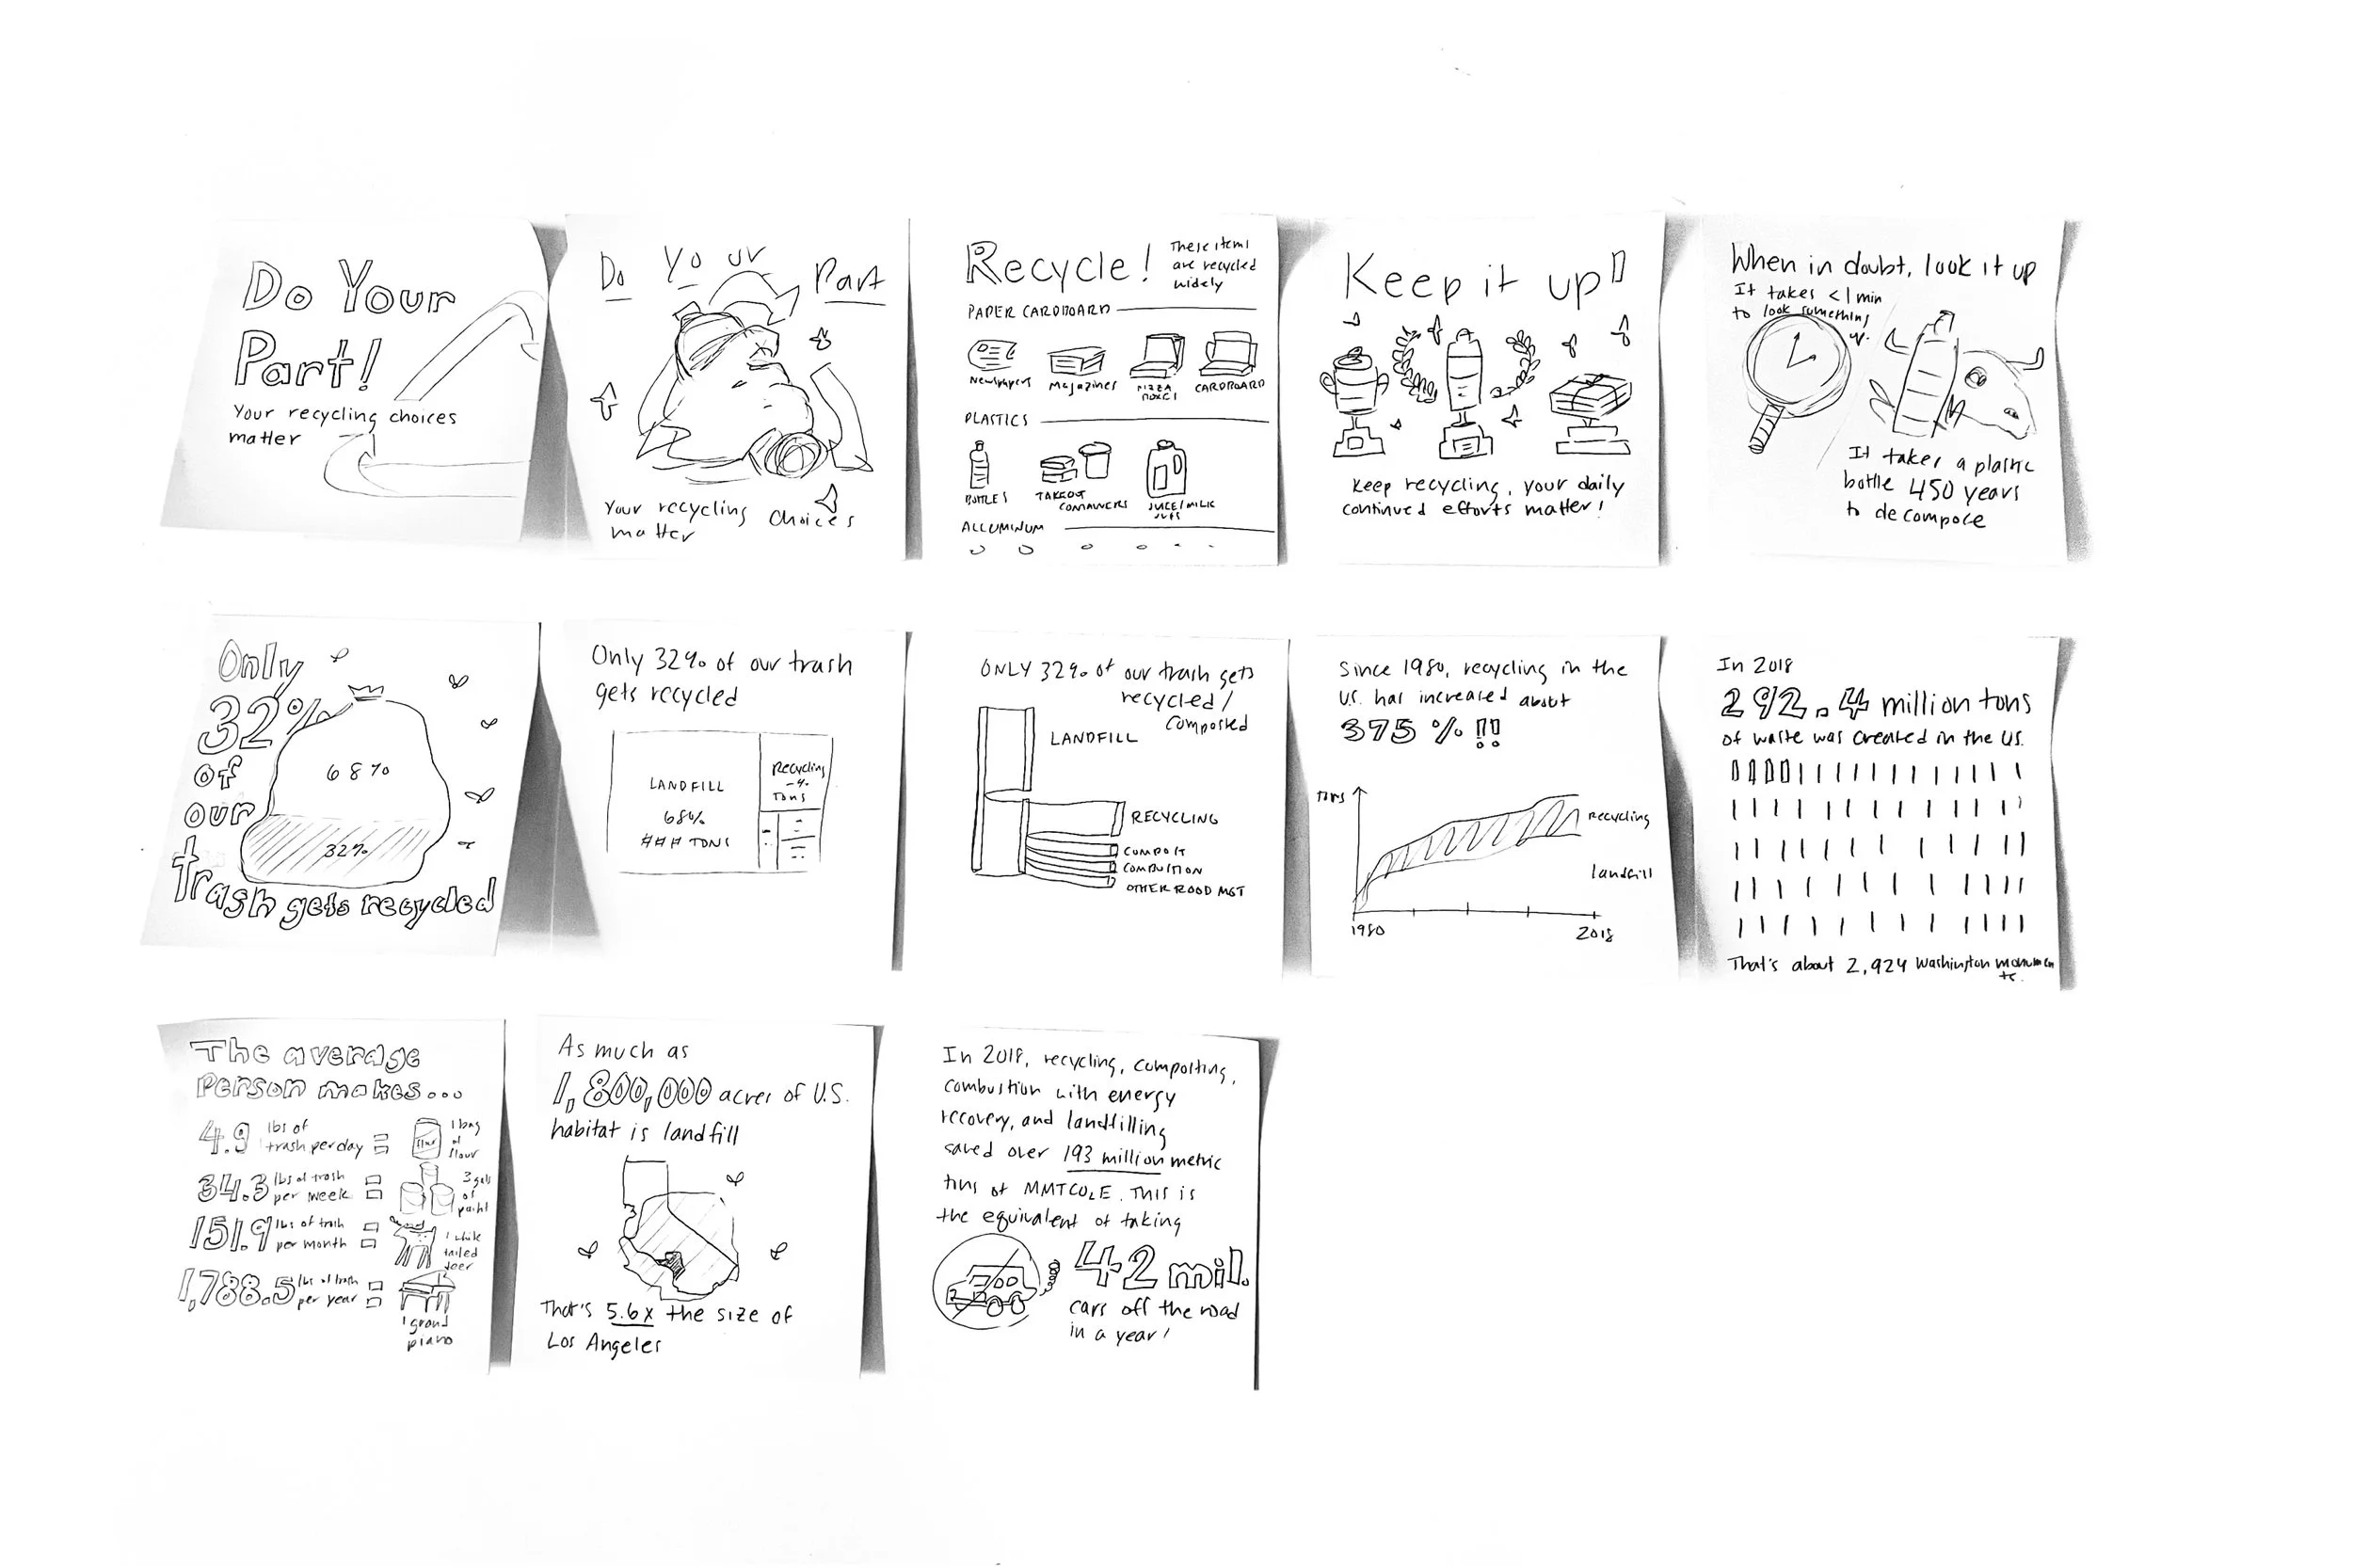 Do Your
Part!
Your recycling choices
matter
Do Your Part
Your recycling choices
matter
Recycle!
These items
are recycled
widely
PAPER CARDBOARD
Newspapers
Magazines
PIZZA
BOXES
CARDBOARD
PLASTICS
BOTTLES
TAKEOUT
CONTAINERS
JUICE/MILK
JUGS
ALLUMINUM
Keep it up!
Keep recycling, your daily
continued efforts matter!
When in doubt, look it up
It takes <1 min
to look something
up.
It takes a plastic
bottle 450 years
to decompose
Only
32%
of
our
trash gets recycled
68%
32%
Only 32% of our trash
gets recycled
LANDFILL
68%
### TONS
Recycling
-%-
Tons
ONLY 32% of our trash gets
recycled/
composted
LANDFILL
RECYCLING
COMPOST
COMBUSTION
OTHER FOOD MGT
Since 1980, recycling in the
U.S. has increased about
375%!!
Tons
recycling
landfill
1980
2018
In 2018
292.4 million tons
of waste was created in the U.S.
That's about 2,924 Washington monumen
ts.
The average
person makes...
4.9 lbs of
trash per day =
1 bag
of
flour
34.3 lbs of trash
per week =
3 gals
of
paint
151.9 lbs of trash
per month =
1 white
tailed
deer
1,788.5 lbs of trash
per year =
1 grand
piano
As much as
1,800,000 acres of U.S.
habitat is landfill
That's 5.6x the size of
Los Angeles
In 2018, recycling, composting,
combustion with energy
recovery, and landfilling
saved over 193 million metric
tins of MMTCO2E. This is
the equivalent of taking
42 mil.
cars off the road
in a year!